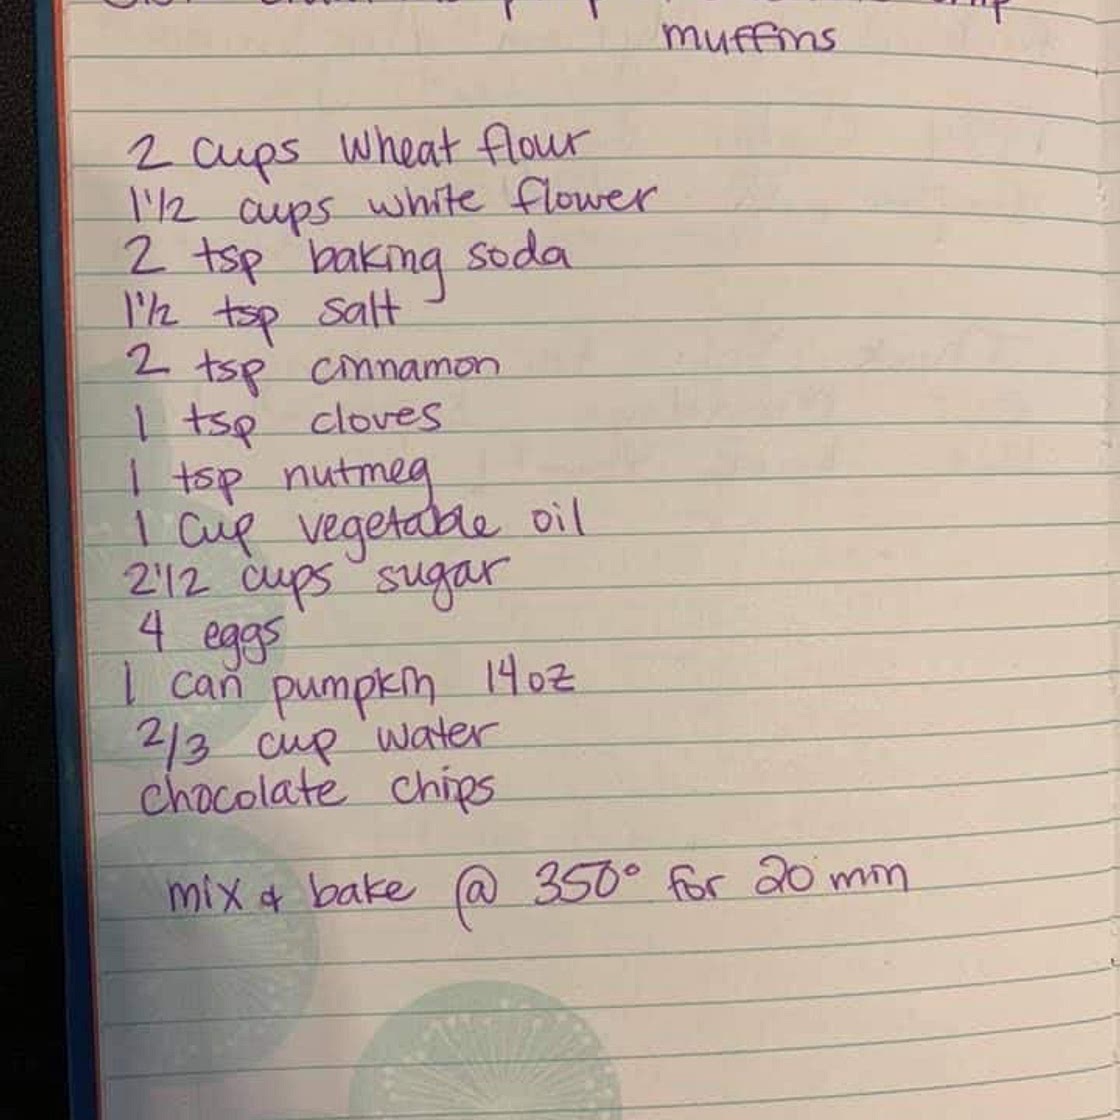 muffins
2 cups wheat flour
1 1/2 cups white flower
2 tsp baking soda
1 1/2 tsp salt
2 tsp cinnamon
1 tsp cloves
1 tsp nutmeg
1 cup vegetable oil
2 1/2 cups sugar
4 eggs
1 can pumpkin 14oz
2/3 cup water
chocolate chips
mix & bake @ 350° for 20 min